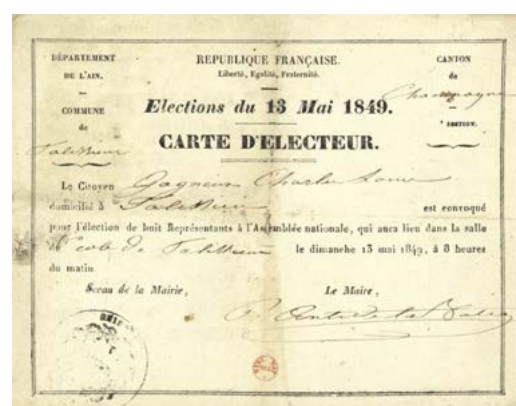 DÉPARTEMENT
DE L'AIN.
COMMUNE
de
Talissieu
REPUBLIQUE FRANÇAISE.
Liberté, Egalité, Fraternité.
CANTON
de
Champagne
SECTION.
Elections du 13 Mai 1849.
CARTE D'ELECTEUR.
Le Citoyen Gagneur Charles Louis
domicilié à Talissieu est convoqué
pour l'élection de huit Représentants à l'Assemblée nationale, qui aura lieu dans la salle
d'école de Talissieu le dimanche 13 mai 1849, à 8 heures
du matin.
Sceau de la Mairie,
Le Maire,